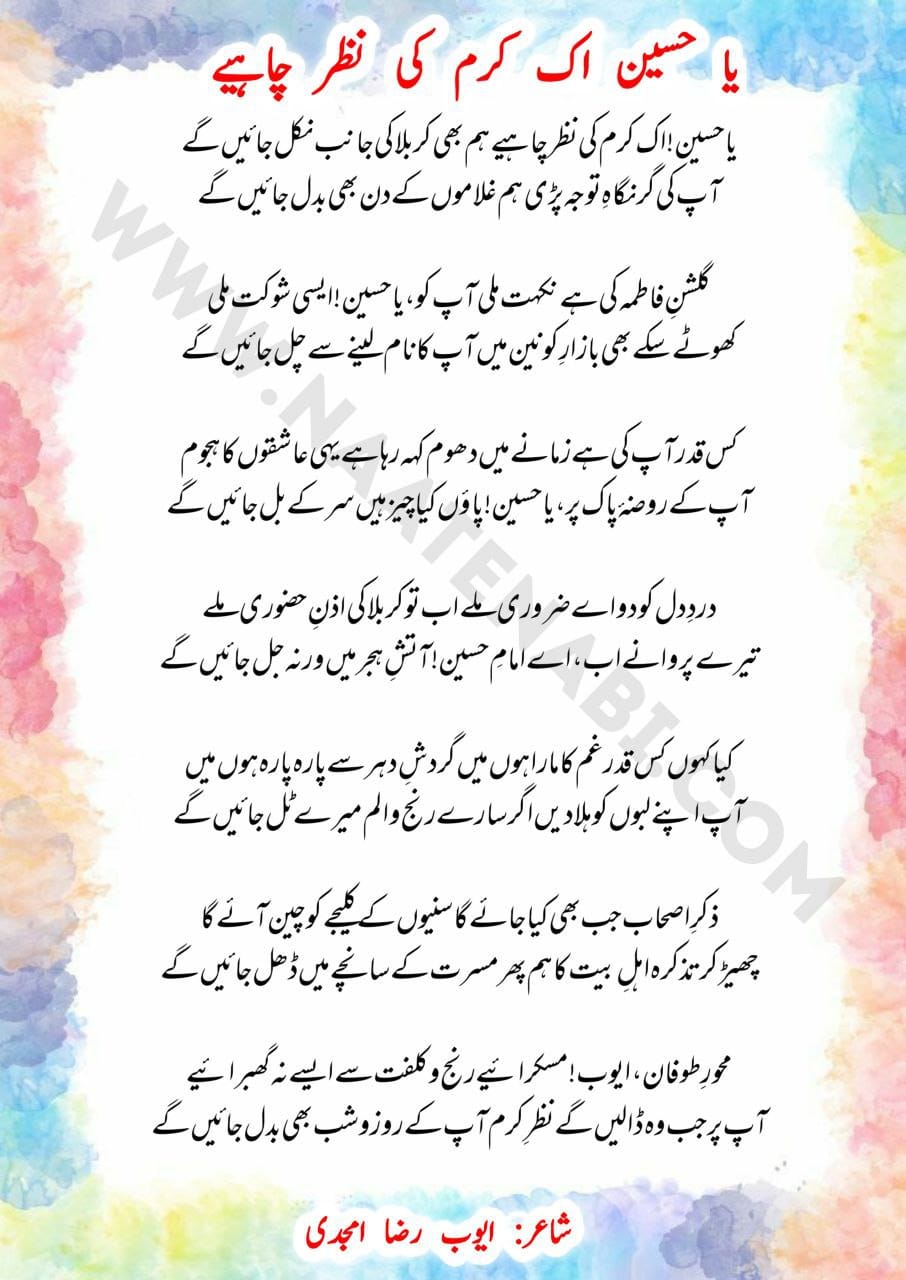 یا حسین اک کرم کی نظر چاہیے
یا حسین! اک کرم کی نظر چاہیے ہم بھی کربلا کی جانب نکل جائیں گے
آپ کی گر نگاہِ توجہ پڑی ہم غلاموں کے دن بھی بدل جائیں گے
گلشنِ فاطمہ کی ہے نکہت ملی آپ کو، یا حسین! ایسی شوکت ملی
کھوٹے سکے بھی بازارِ کونین میں آپ کا نام لینے سے چل جائیں گے
کس قدر آپ کی ہے زمانے میں دھوم کہہ رہا ہے یہی عاشقوں کا ہجوم
آپ کے روضۂ پاک پر، یا حسین! پاؤں کیا چیز ہیں سر کے بل جائیں گے
دردِ دل کو دواے ضروری ملے اب تو کربلا کی اذنِ حضوری ملے
تیرے پروانے اب، اے امامِ حسین! آتشِ ہجر میں ورنہ جل جائیں گے
کیا کہوں کس قدر غم کا مارا ہوں میں گردشِ دہر سے پارہ پارہ ہوں میں
آپ اپنے لبوں کو ہلا دیں اگر سارے رنج و الم میرے ٹل جائیں گے
ذکرِ اصحاب جب بھی کیا جائے گا سنیوں کے کلیجے کو چین آئے گا
چھیڑ کر تذکرہ اہلِ بیت کا ہم پھر مسرت کے سانچے میں ڈھل جائیں گے
محورِ طوفان، ایوب! مسکرائیے رنج و کلفت سے ایسے نہ گھبرائیے
آپ پر جب وہ ڈالیں گے نظرِ کرم آپ کے روز و شب بھی بدل جائیں گے
شاعر: ایوب رضا امجدی
WWW.NAATENABI.COM